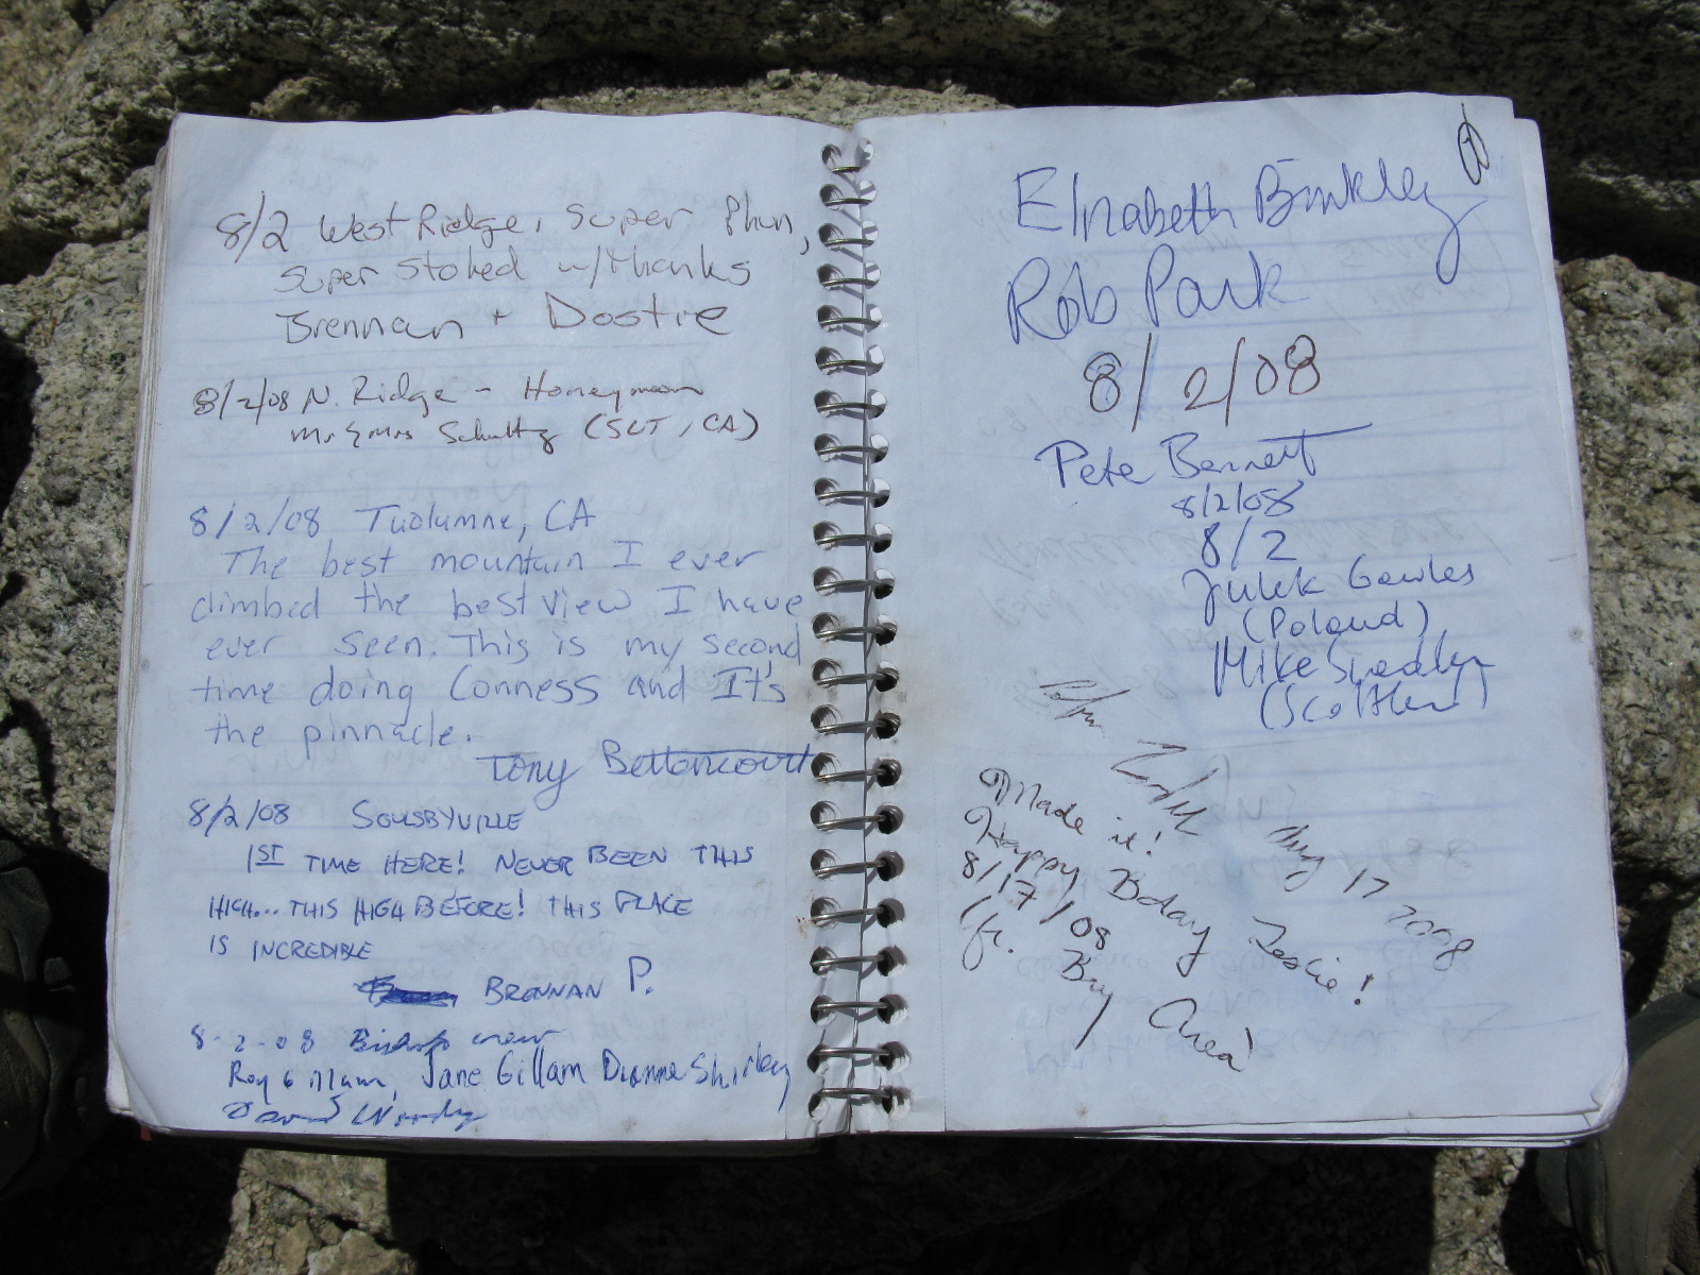 8/2 West Ridge, Super Phun,
Super Stoked w/thanks
Brennan + Dostie
8/2/08 N. Ridge - Honeymoon
Mr & Mrs Schultz (SLT, CA)
8/2/08 Tuolumne, CA
The best mountain I ever
climbed the best view I have
ever seen. This is my second
time doing Conness and It's
the pinnacle.
Tony Bettencourt
8/2/08 SOULSBYVILLE
1ST TIME HERE! NEVER BEEN THIS
HIGH... THIS HIGH BEFORE! THIS PLACE
IS INCREDIBLE
BRENNAN P.
8-2-08 Bishop crew
Roy Gillam, Jane Gillam Dianne Shirley
David
Elizabeth Binkley
Rob Park
8/2/08
Pete Bennett
8/2/08
8/2
Julek
(Poland)
Mike
(Scotland)
Aug 17 2008
Made it!
Happy Bday Leslie!
8/17/08
(fr. Bay Area)